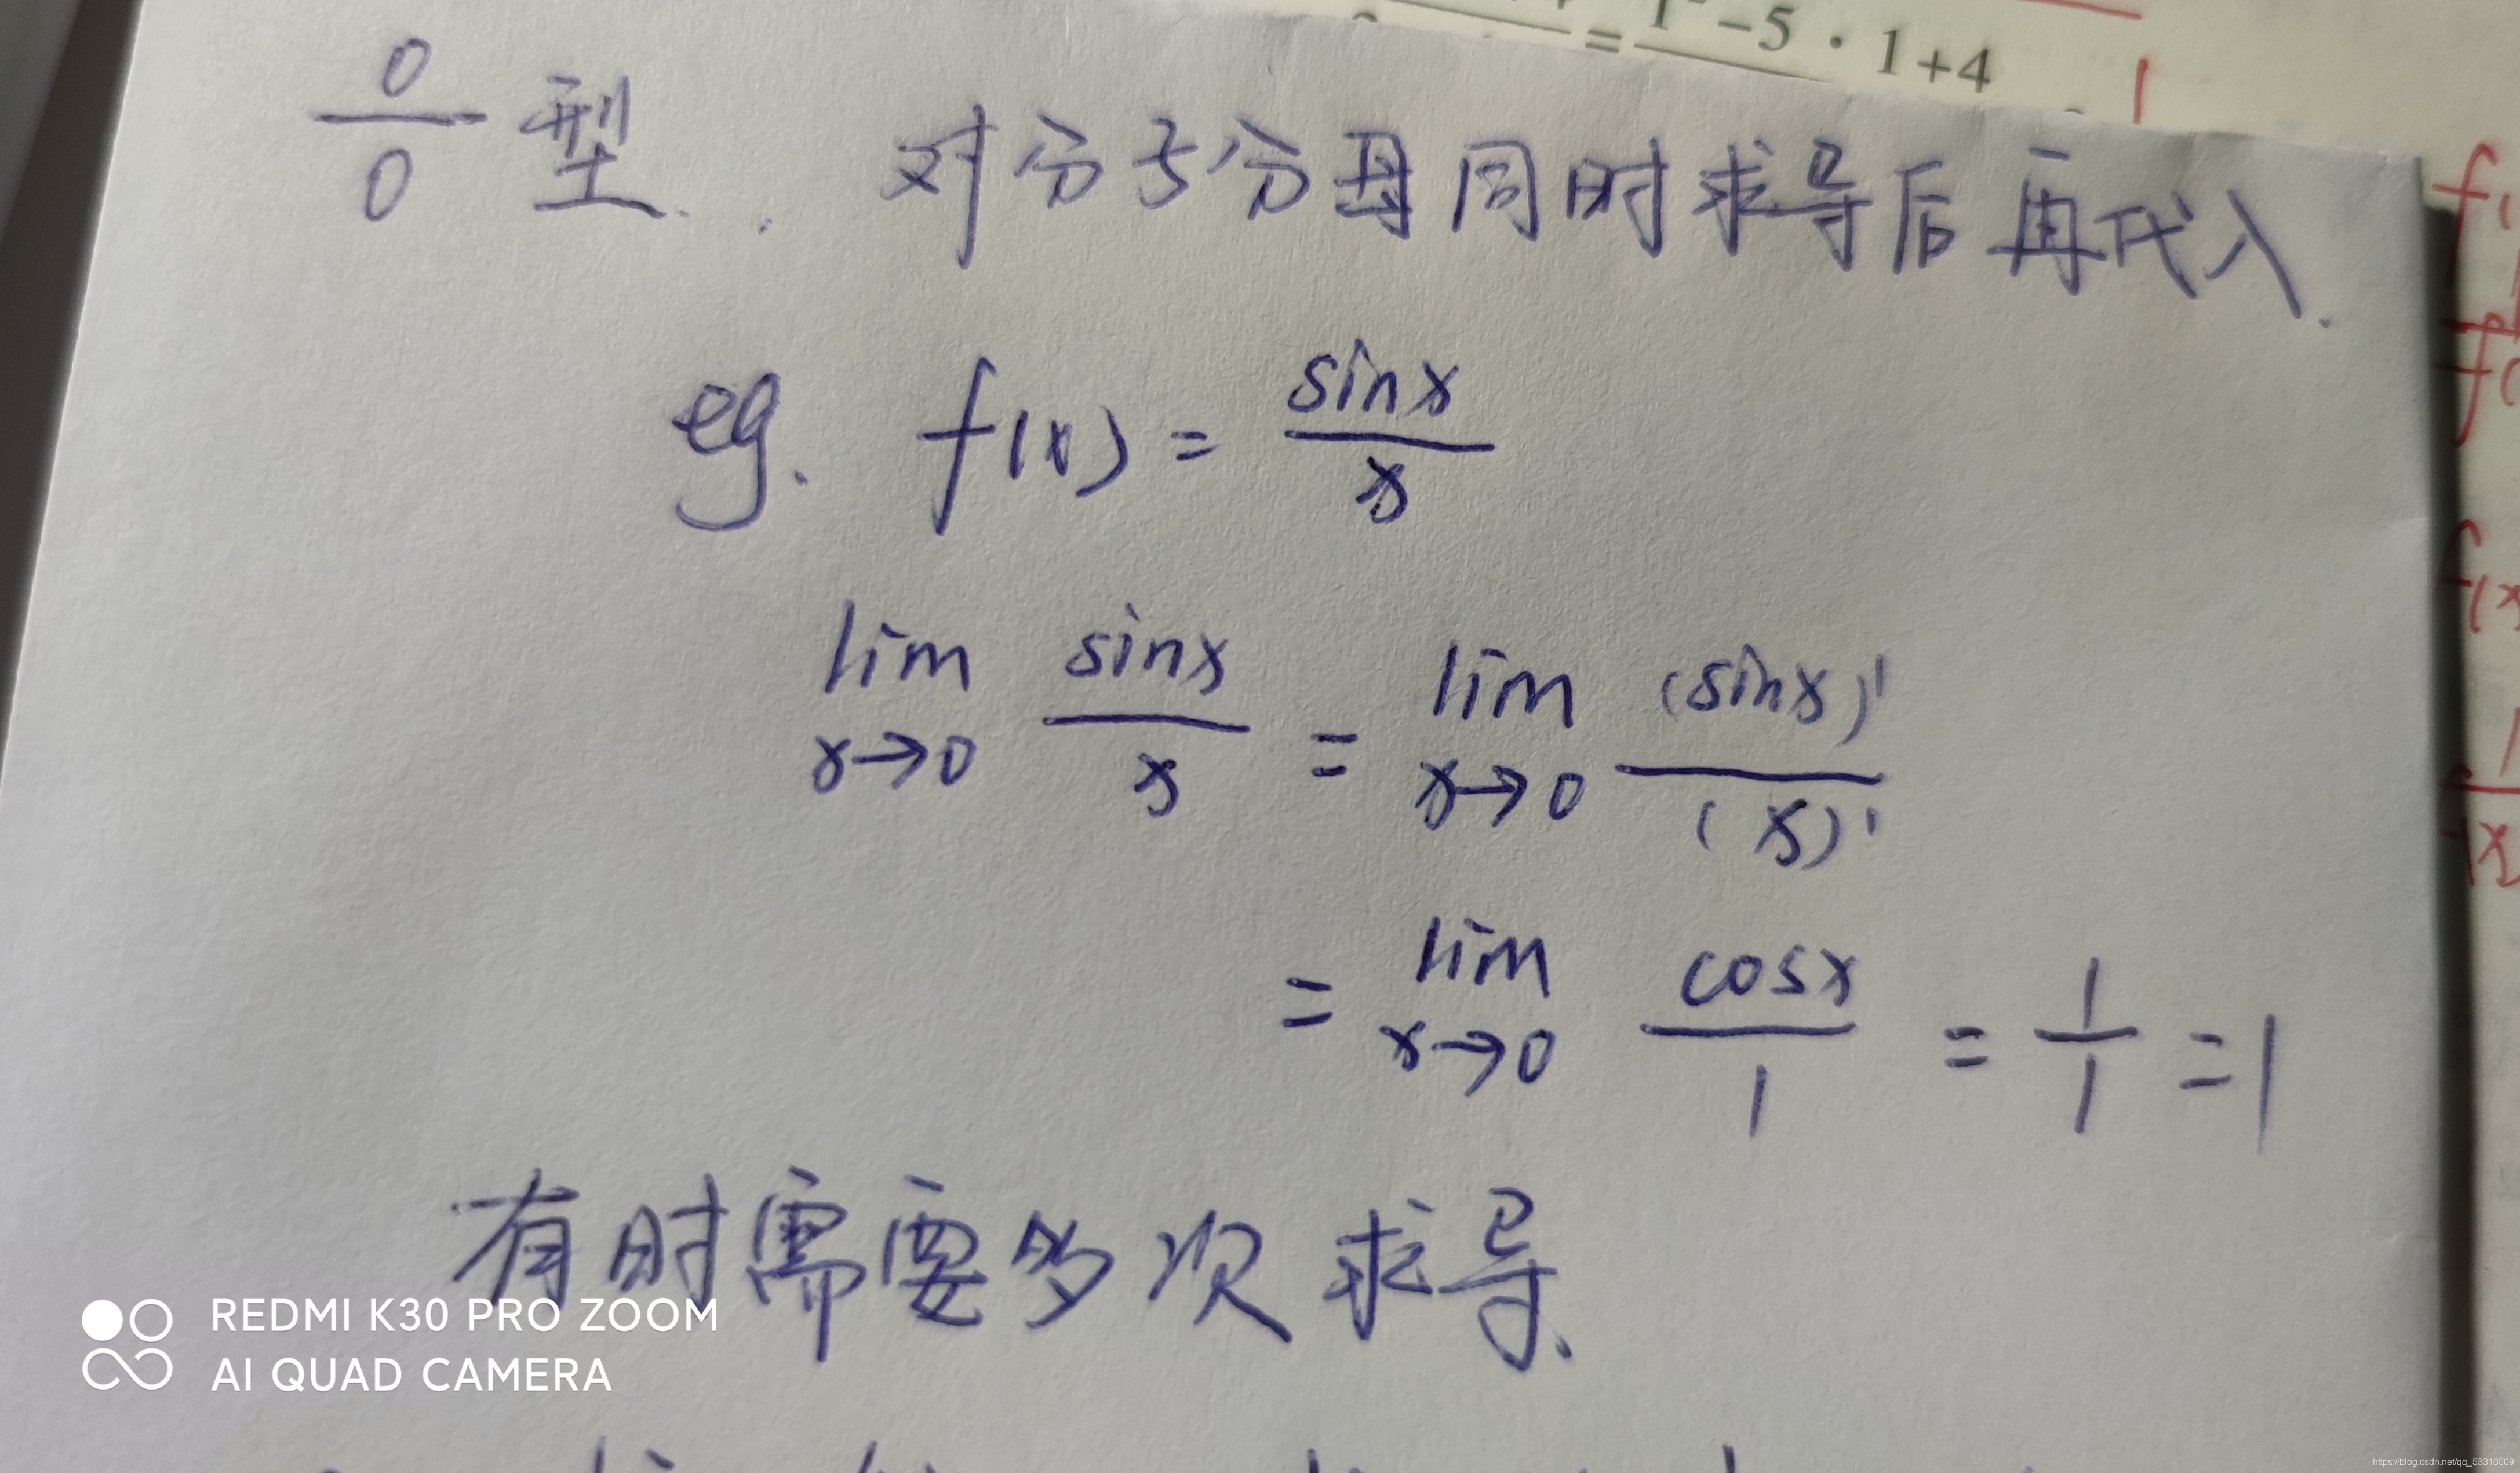 = 1²-5·1+4
0/0 型. 对分子分母同时求导后再代入.
eg. f(x) = sinx/x
lim x→0 sinx/x = lim x→0 (sinx)'/(x)'
= lim x→0 cosx/1 = 1/1 = 1
有时需要多次求导.
REDMI K30 PRO ZOOM
AI QUAD CAMERA
https://blog.csdn.net/qq_53316509